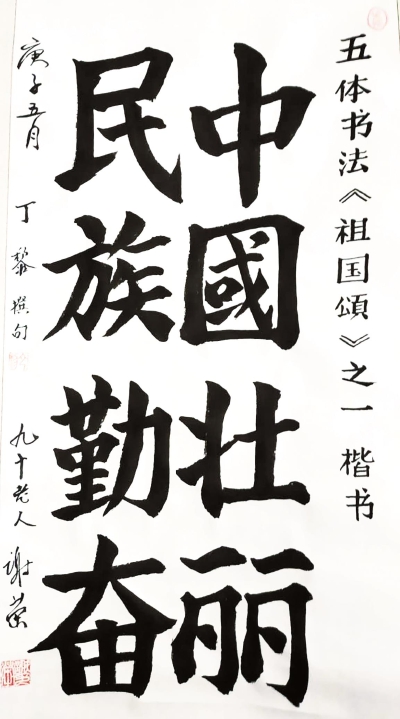 五体书法《祖国頌》之一 楷书
中國壮丽
民族勤奋
庚子五月 丁黎撰句 九十老人 谢荣